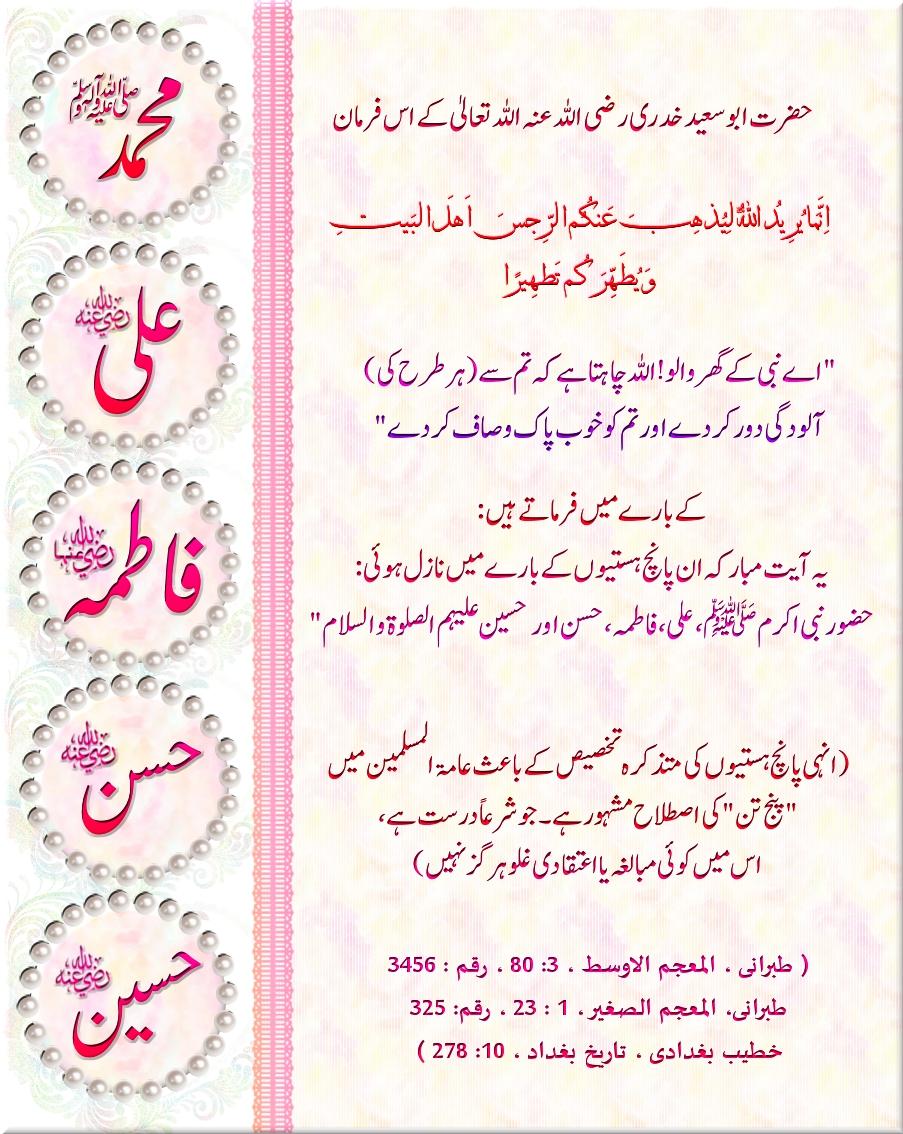 حضرت ابو سعید خدری رضی اللہ عنہ اللہ تعالٰی کے اس فرمان
اِنَّمَا یُرِیدُ اللہُ لِیُذھِبَ عَنکُم الرِّجسَ اَھلَ البَیتِ
وَیُطَھِّرَ کُم تَطھِیرًا
"اے نبی کے گھر والو! اللہ چاہتا ہے کہ تم سے (ہر طرح کی)
آلودگی دور کر دے اور تم کو خوب پاک و صاف کر دے"
کے بارے میں فرماتے ہیں:
یہ آیت مبارکہ ان پانچ ہستیوں کے بارے میں نازل ہوئی:
حضور نبی اکرم ﷺ، علی، فاطمہ، حسن اور حسین علیہم الصلوۃ والسلام"
(انہی پانچ ہستیوں کی متذکرہ تخصیص کے باعث عامۃ المسلمین میں
"پنج تن" کی اصطلاح مشہور ہے۔ جو شرعاً درست ہے،
اس میں کوئی مبالغہ یا اعتقادی غلو ہرگز نہیں)
( طبرانی ، المعجم الاوسط ، 3: 80 ، رقم : 3456
طبرانی، المعجم الصغیر ، 1 : 23 ، رقم: 325
خطیب بغدادی ، تاریخ بغداد ، 10: 278 )
محمد صلی اللہ علیہ وآلہ وسلم
علی رضی اللہ عنہ
فاطمہ رضی اللہ عنہا
حسن رضی اللہ عنہ
حسین رضی اللہ عنہ